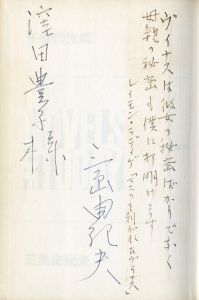 ヴィナスは彼女の秘密ばかりでなく
母親の秘密も僕に打明けます
レイモン・ラディゲ「マスクを剥がれたヴィナス」
三島由紀夫
窪田豊子様